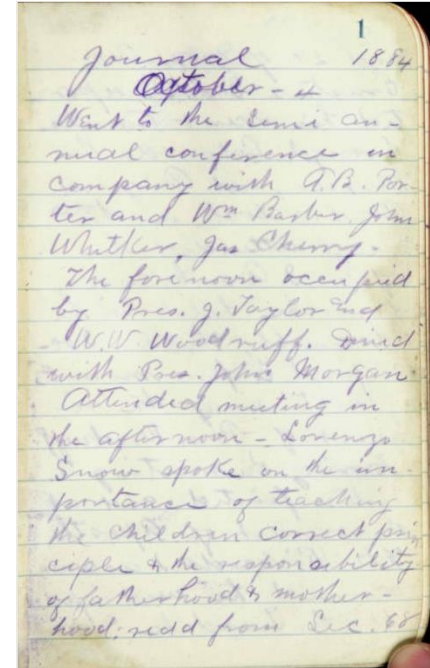 1
Journal 1884
October - 4
Went to the Semi an-
nual conference in
company with A.B. Por-
ter and Wm Barber, John
Whitker, Jas Cherry.
The forenoon occupied
by Pres. J. Taylor and
W.W. Woodruff. Dined
with Pres. John Morgan.
Attended meeting in
the afternoon - Lorenzo
Snow spoke on the im-
portance of teaching
the children correct prin
ciple & the responsibility
of fatherhood & mother-
hood; redd from Sec. 68